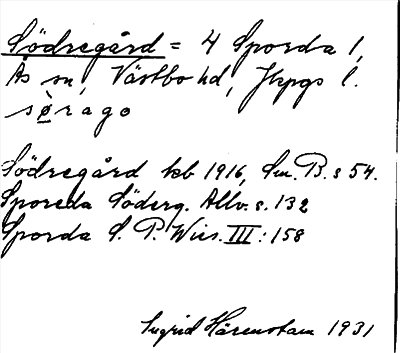 Södregård = 4 Sporda 1,
Ås sn, Västbo hd, Jkpgs l.
sø̀rago
Södregård kb 1916, Sm. B. s 54.
Sporeda Söderg. Allv. s. 132
Sporda S. P. Wies. III : 158
Ingrid Härenstam 1931